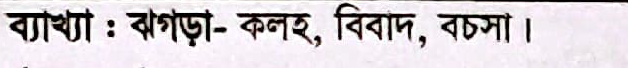 ব্যাখ্যা : ঝগড়া- কলহ, বিবাদ, বচসা।